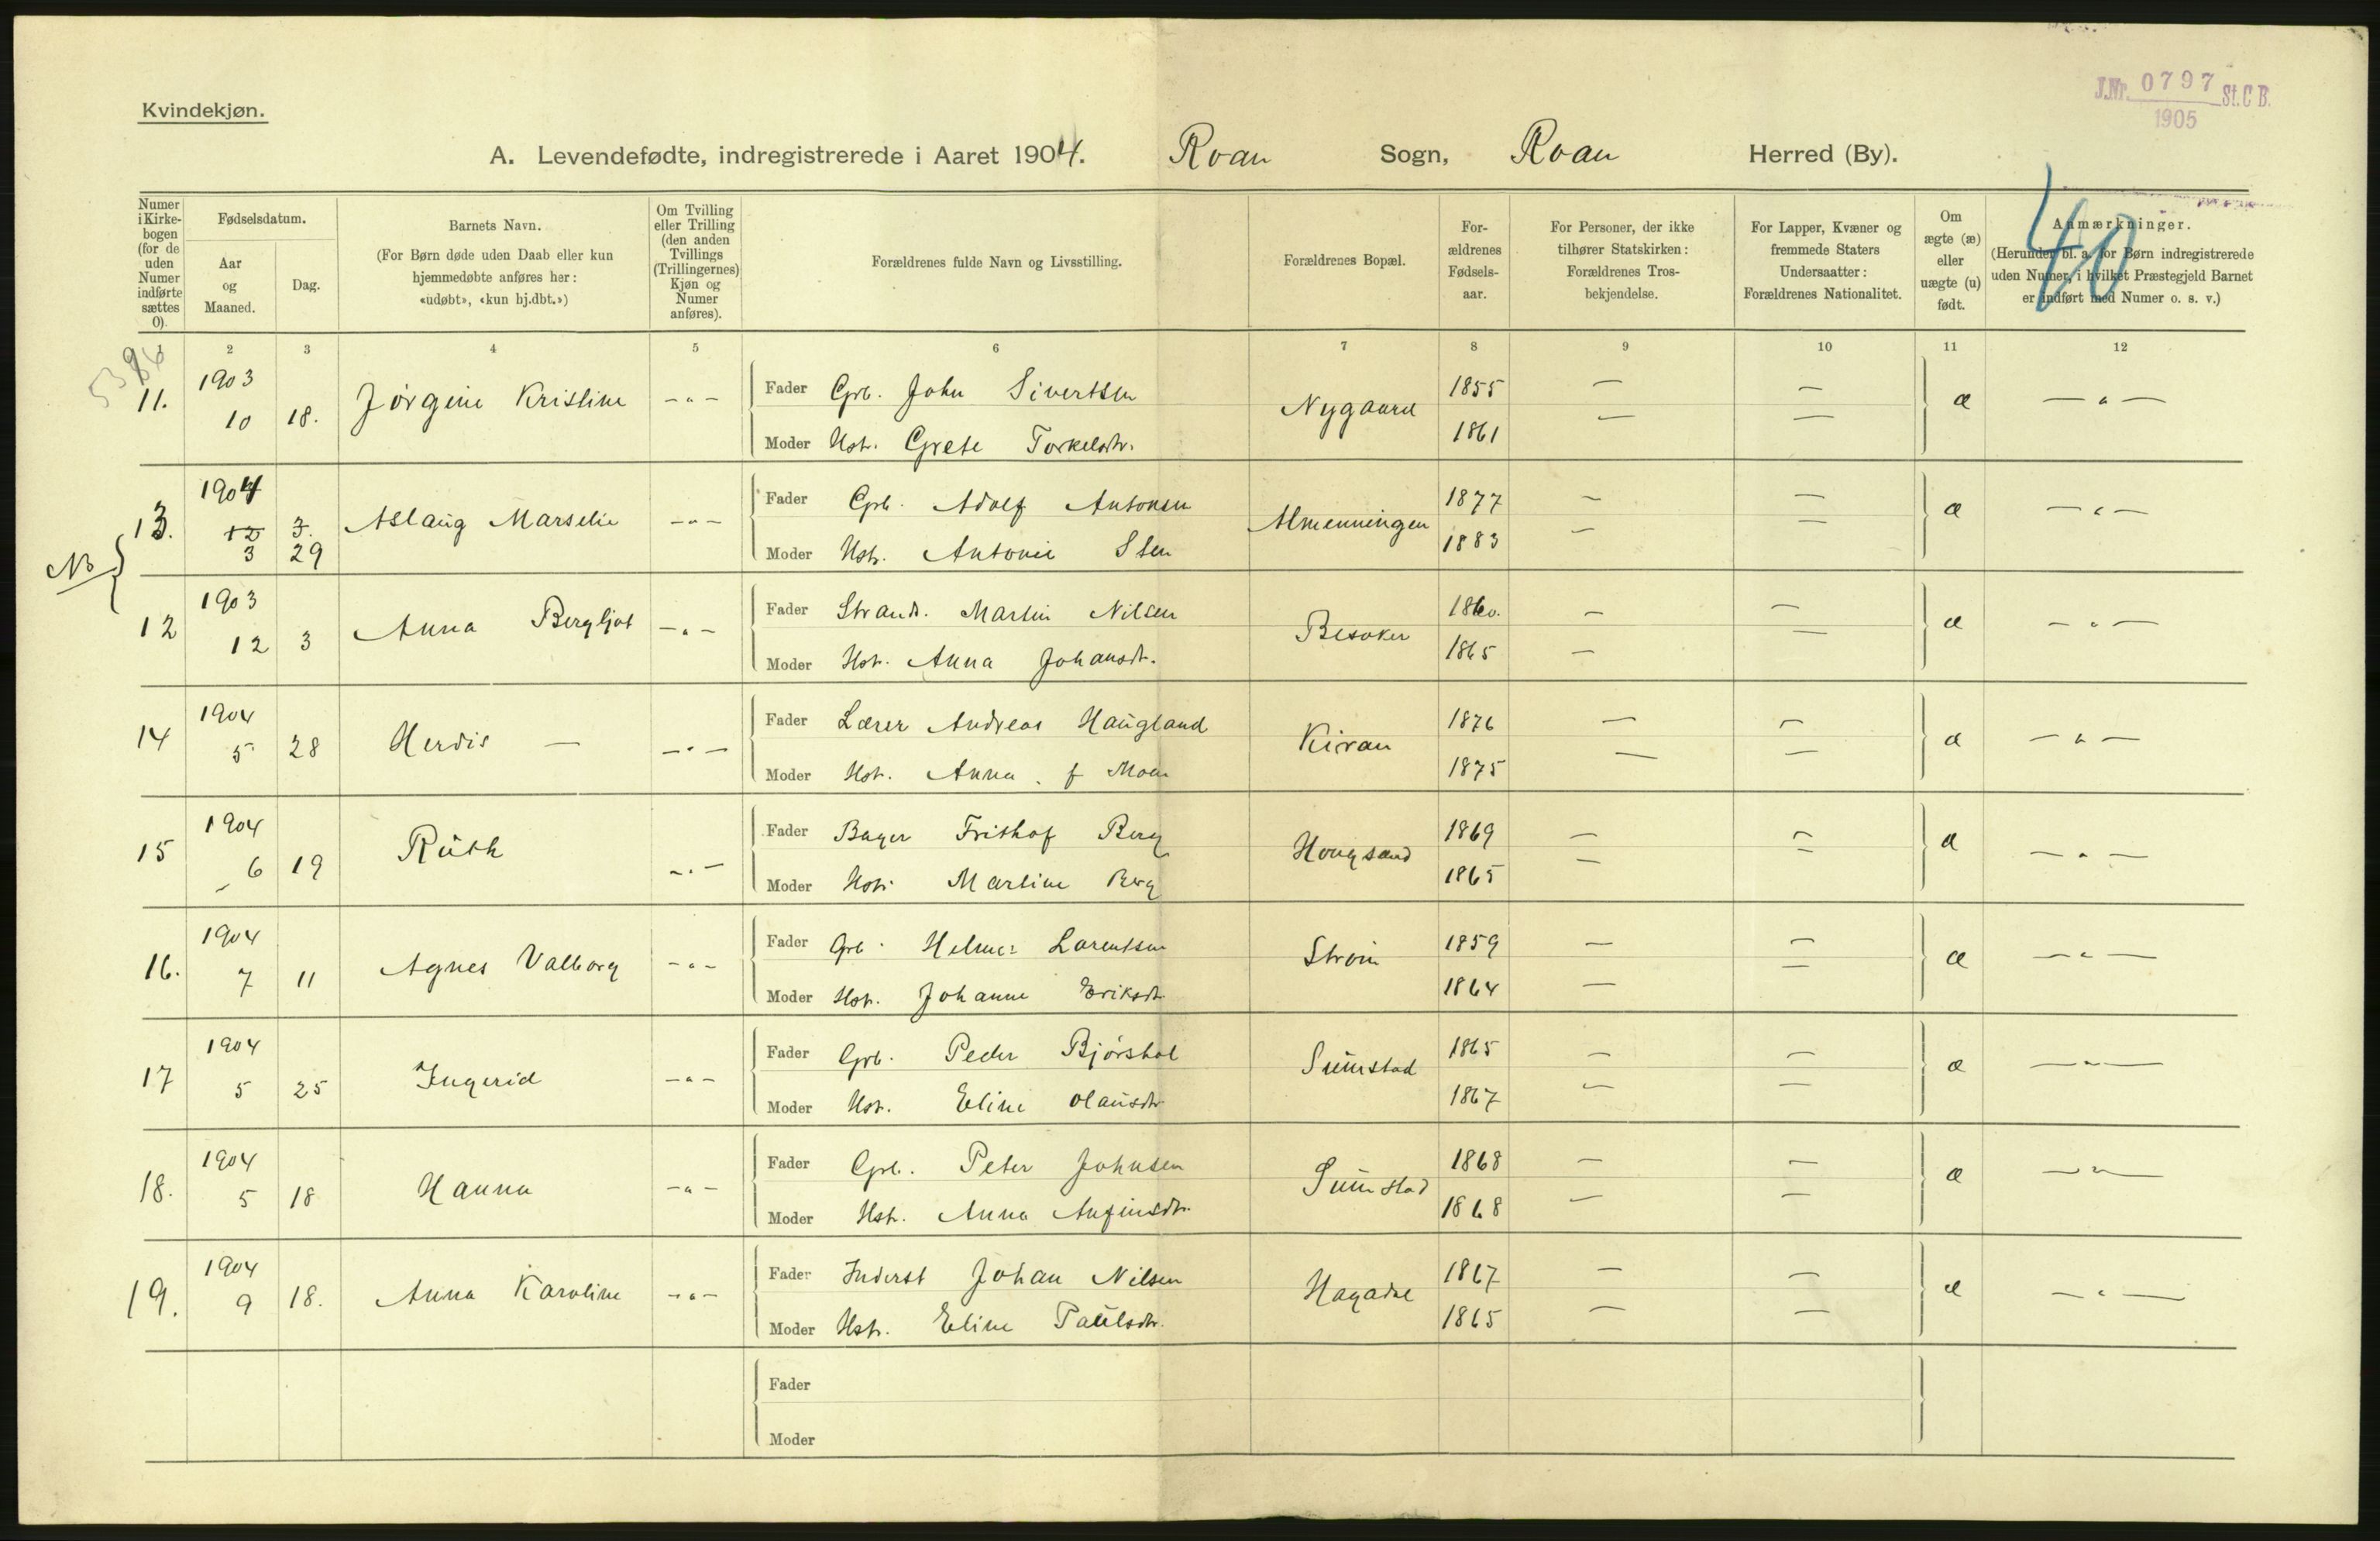 Kvindekjøn.
J.Nr. 0797 St.C B.
1905
A. Levendefødte, indregistrerede i Aaret 1904. Roan Sogn, Roan Herred (By).
40
Numer i Kirkebogen (for de uden Numer indførte sættes 0).
Fødselsdatum.
Aar og Maaned.
Dag.
Barnets Navn.
(For Børn døde uden Daab eller kun hjemmedøbte anføres her: «udøbt», «kun hj.dbt.»)
Om Tvilling eller Trilling (den anden Tvillings (Trillingernes) Kjøn og Numer anføres).
Forældrenes fulde Navn og Livsstilling.
Forældrenes Bopæl.
Forældrenes Fødselsaar.
For Personer, der ikke tilhører Statskirken: Forældrenes Trosbekjendelse.
For Lapper, Kvæner og fremmede Staters Undersaatter: Forældrenes Nationalitet.
Om ægte (æ) eller uægte (u) født.
Anmærkninger.
(Herunder bl. a. for Børn indregistrerede uden Numer, i hvilket Præstegjeld Barnet er indført med Numer o. s. v.)
1 2 3 4 5 6 7 8 9 10 11 12
11. 1903 10 18. Jørgine Kristine -„- Fader Grb. John Sivertsen Nygaard 1855 — — æ — „ —
Moder Hst. Grete Torkelsdtr. 1861 — —
13. 1904 12 3. Aslaug Marselie -„- Fader Grb. Adolf Antonsen Almenningen 1877 — — æ — „ —
3 29 Moder Hst. Antonie Sten 1883 — —
NB
12 1903 12 3 Anna Bergljot -„- Fader Strands. Martin Nilsen Besaker 1860. — — æ — „ —
Moder Hst. Anna Johansdt. 1865 — —
14 1904 5 28 Herdis — -„- Fader Lærer Andreas Haugland Kiran 1876 — — æ — „ —
Moder Hst. Anna f Moen 1875 — —
15 1904 6 19 Ruth -„- Fader Bager Frithof Berg Hongsand 1869 — — æ — „ —
Moder Hst. Martine Berg 1865 — —
16. 1904 7 11 Agnes Valborg -„- Fader Grb. Helmer Lorentsen Strøm 1859 — — æ — „ —
Moder Hst. Johanne Eriksdt. 1864 — —
17 1904 5 25 Ingerid -„- Fader Grb. Peder Bjørshol Sumstad 1865 — — æ — „ —
Moder Hst. Eline Olausdtr 1867 — —
18. 1904 5 18 Hanna -„- Fader Grb. Peter Johnsen Sumstad 1868 — — æ — „ —
Moder Hst. Anna Anfinsdtr. 1868 — —
19. 1904 9 18. Anna Karoline -„- Fader Inderst Johan Nilsen 1867 — — æ — „ —
Moder Hst. Eline Paulsdtr. 1865 — —
Fader
Moder